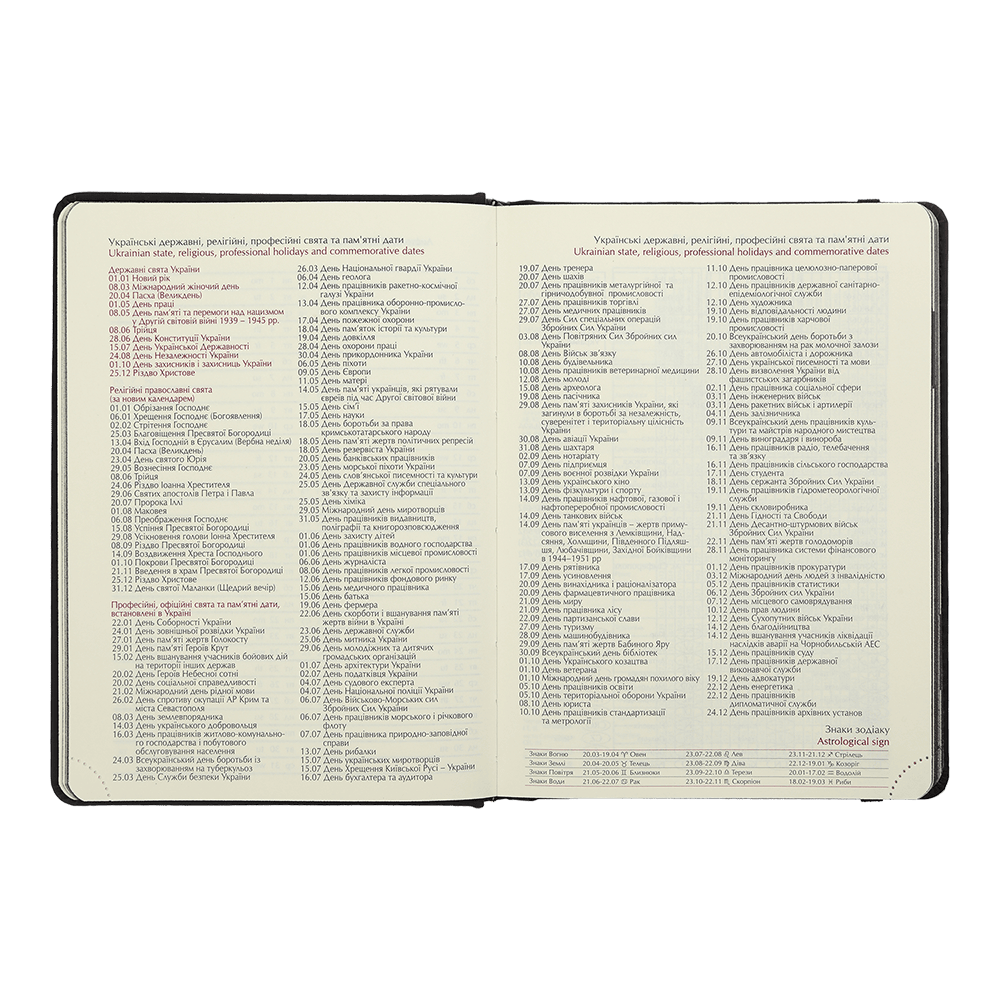 Українські державні, релігійні, професійні свята та пам'ятні дати
Ukrainian state, religious, professional holidays and commemorative dates
Державні свята України
01.01 Новий рік
08.03 Міжнародний жіночий день
20.04 Пасха (Великдень)
01.05 День праці
08.05 День пам'яті та перемоги над нацизмом
у Другій світовій війні 1939 – 1945 рр.
08.06 Трійця
28.06 День Конституції України
15.07 День Української Державності
24.08 День Незалежності України
01.10 День захисників і захисниць України
25.12 Різдво Христове
Релігійні православні свята
(за новим календарем)
01.01 Обрізання Господнє
06.01 Хрещення Господнє (Богоявлення)
02.02 Стрітення Господнє
25.03 Благовіщення Пресвятої Богородиці
13.04 Вхід Господній в Єрусалим (Вербна неділя)
20.04 Пасха (Великдень)
23.04 День святого Юрія
29.05 Вознесіння Господнє
08.06 Трійця
24.06 Різдво Іоанна Хрестителя
29.06 Святих апостолів Петра і Павла
20.07 Пророка Іллі
01.08 Маковея
06.08 Преображення Господнє
15.08 Успіння Пресвятої Богородиці
29.08 Усікновення голови Іонна Хрестителя
08.09 Різдво Пресвятої Богородиці
14.09 Воздвиження Хреста Господнього
01.10 Покрови Пресвятої Богородиці
21.11 Введення в храм Пресвятої Богородиці
25.12 Різдво Христове
31.12 День святої Маланки (Щедрий вечір)
Професійні, офіційні свята та пам'ятні дати,
встановлені в Україні
22.01 День Соборності України
24.01 День зовнішньої розвідки України
27.01 День пам'яті жертв Голокосту
29.01 День пам'яті Героїв Крут
15.02 День вшанування учасників бойових дій
на території інших держав
20.02 День Героїв Небесної сотні
20.02 День соціальної справедливості
21.02 Міжнародний день рідної мови
26.02 День спротиву окупації АР Крим та
міста Севастополя
08.03 День землевпорядника
14.03 День українського добровольця
16.03 День працівників житлово-комунально-
го господарства і побутового
обслуговування населення
24.03 Всеукраїнський день боротьби із
захворюванням на туберкульоз
25.03 День Служби безпеки України
26.03 День Національної гвардії України
06.04 День геолога
12.04 День працівників ракетно-космічної
галузі України
13.04 День працівника оборонно-промисло-
вого комплексу України
17.04 День пожежної охорони
18.04 День пам'яток історії та культури
19.04 День довкілля
28.04 День охорони праці
30.04 День прикордонника України
06.05 День піхоти
09.05 День Європи
11.05 День матері
14.05 День пам'яті українців, які рятували
євреїв під час Другої світової війни
15.05 День сім'ї
17.05 День науки
18.05 День боротьби за права
кримськотатарського народу
18.05 День пам'яті жертв політичних репресій
18.05 День резервіста України
20.05 День банківських працівників
23.05 День морської піхоти України
24.05 День слов'янської писемності та культури
25.05 День Державної служби спеціального
зв'язку та захисту інформації
25.05 День хіміка
29.05 Міжнародний день миротворців
31.05 День працівників видавництв,
поліграфії та книгорозповсюдження
01.06 День захисту дітей
01.06 День працівників водного господарства
01.06 День працівників місцевої промисловості
06.06 День журналіста
08.06 День працівників легкої промисловості
12.06 День працівників фондового ринку
15.06 День медичного працівника
15.06 День батька
19.06 День фермера
22.06 День скорботи і вшанування пам'яті
жертв війни в Україні
23.06 День державної служби
25.06 День митника України
29.06 День молодіжних та дитячих
громадських організацій
01.07 День архітектури України
02.07 День податківця України
04.07 День судового експерта
04.07 День Національної поліції України
06.07 День Військово-Морських сил
Збройних Сил України
06.07 День працівників морського і річкового
флоту
07.07 День працівника природно-заповідної
справи
13.07 День рибалки
15.07 День українських миротворців
15.07 День Хрещення Київської Русі – України
16.07 День бухгалтера та аудитора
Українські державні, релігійні, професійні свята та пам'ятні дати
Ukrainian state, religious, professional holidays and commemorative dates
19.07 День тренера
20.07 День шахів
20.07 День працівників металургійної та
гірничодобувної промисловості
27.07 День працівників торгівлі
27.07 День медичних працівників
29.07 День Сил спеціальних операцій
Збройних Сил України
03.08 День Повітряних Сил Збройних сил
України
08.08 День Військ зв'язку
10.08 День будівельника
10.08 День працівників ветеринарної медицини
12.08 День молоді
15.08 День археолога
19.08 День пасічника
29.08 День пам'яті захисників України, які
загинули в боротьбі за незалежність,
суверенітет і територіальну цілісність
України
30.08 День авіації України
31.08 День шахтаря
02.09 День нотаріату
07.09 День підприємця
07.09 День воєнної розвідки України
13.09 День українського кіно
13.09 День фізкультури і спорту
14.09 День працівників нафтової, газової і
нафтопереробної промисловості
14.09 День танкових військ
14.09 День пам'яті українців – жертв приму-
сового виселення з Лемківщини, Над-
сяння, Холмщини, Південного Підляш-
шя, Любачівщини, Західної Бойківщини
в 1944–1951 рр
17.09 День рятівника
17.09 День усиновлення
20.09 День винахідника і раціоналізатора
20.09 День фармацевтичного працівника
21.09 День миру
21.09 День працівника лісу
22.09 День партизанської слави
27.09 День туризму
28.09 День машинобудівника
29.09 День пам'яті жертв Бабиного Яру
30.09 Всеукраїнський день бібліотек
01.10 День Українського козацтва
01.10 День ветерана
01.10 Міжнародний день громадян похилого віку
05.10 День працівників освіти
05.10 День територіальної оборони України
08.10 День юриста
10.10 День працівників стандартизації
та метрології
11.10 День працівника целюлозно-паперової
промисловості
12.10 День працівників державної санітарно-
епідеміологічної служби
12.10 День художника
19.10 День відповідальності людини
19.10 День працівників харчової
промисловості
20.10 Всеукраїнський день боротьби з
захворюванням на рак молочної залози
26.10 День автомобіліста і дорожника
27.10 День української писемності та мови
28.10 День визволення України від
фашистських загарбників
02.11 День працівника соціальної сфери
03.11 День інженерних військ
03.11 День ракетних військ і артилерії
04.11 День залізничника
09.11 Всеукраїнський день працівників куль-
тури та майстрів народного мистецтва
09.11 День виноградаря і винороба
16.11 День працівників радіо, телебачення
та зв'язку
16.11 День працівників сільського господарства
17.11 День студента
18.11 День сержанта Збройних Сил України
19.11 День працівників гідрометеорологічної
служби
19.11 День скловиробника
21.11 День Гідності та Свободи
21.11 День Десантно-штурмових військ
Збройних Сил України
22.11 День пам'яті жертв голодоморів
28.11 День працівника системи фінансового
моніторингу
01.12 День працівників прокуратури
03.12 Міжнародний день людей з інвалідністю
05.12 День працівників статистики
06.12 День Збройних сил України
07.12 День місцевого самоврядування
10.12 День прав людини
12.12 День Сухопутних військ України
14.12 День благодійництва
14.12 День вшанування учасників ліквідації
наслідків аварії на Чорнобильській АЕС
15.12 День працівників суду
17.12 День працівників державної
виконавчої служби
19.12 День адвокатури
22.12 День енергетика
22.12 День працівників
дипломатичної служби
24.12 День працівників архівних установ
Знаки зодіаку
Astrological sign
Знаки Вогню 20.03-19.04 ♈ Овен 23.07-22.08 ♌ Лев 23.11-21.12 ♐ Стрілець
Знаки Землі 20.04-20.05 ♉ Телець 23.08-22.09 ♍ Діва 22.12-19.01 ♑ Козоріг
Знаки Повітря 21.05-20.06 ♊ Близнюки 23.09-22.10 ♎ Терези 20.01-17.02 ♒ Водолій
Знаки Води 21.06-22.07 ♋ Рак 23.10-22.11 ♏ Скорпіон 18.02-19.03 ♓ Риби